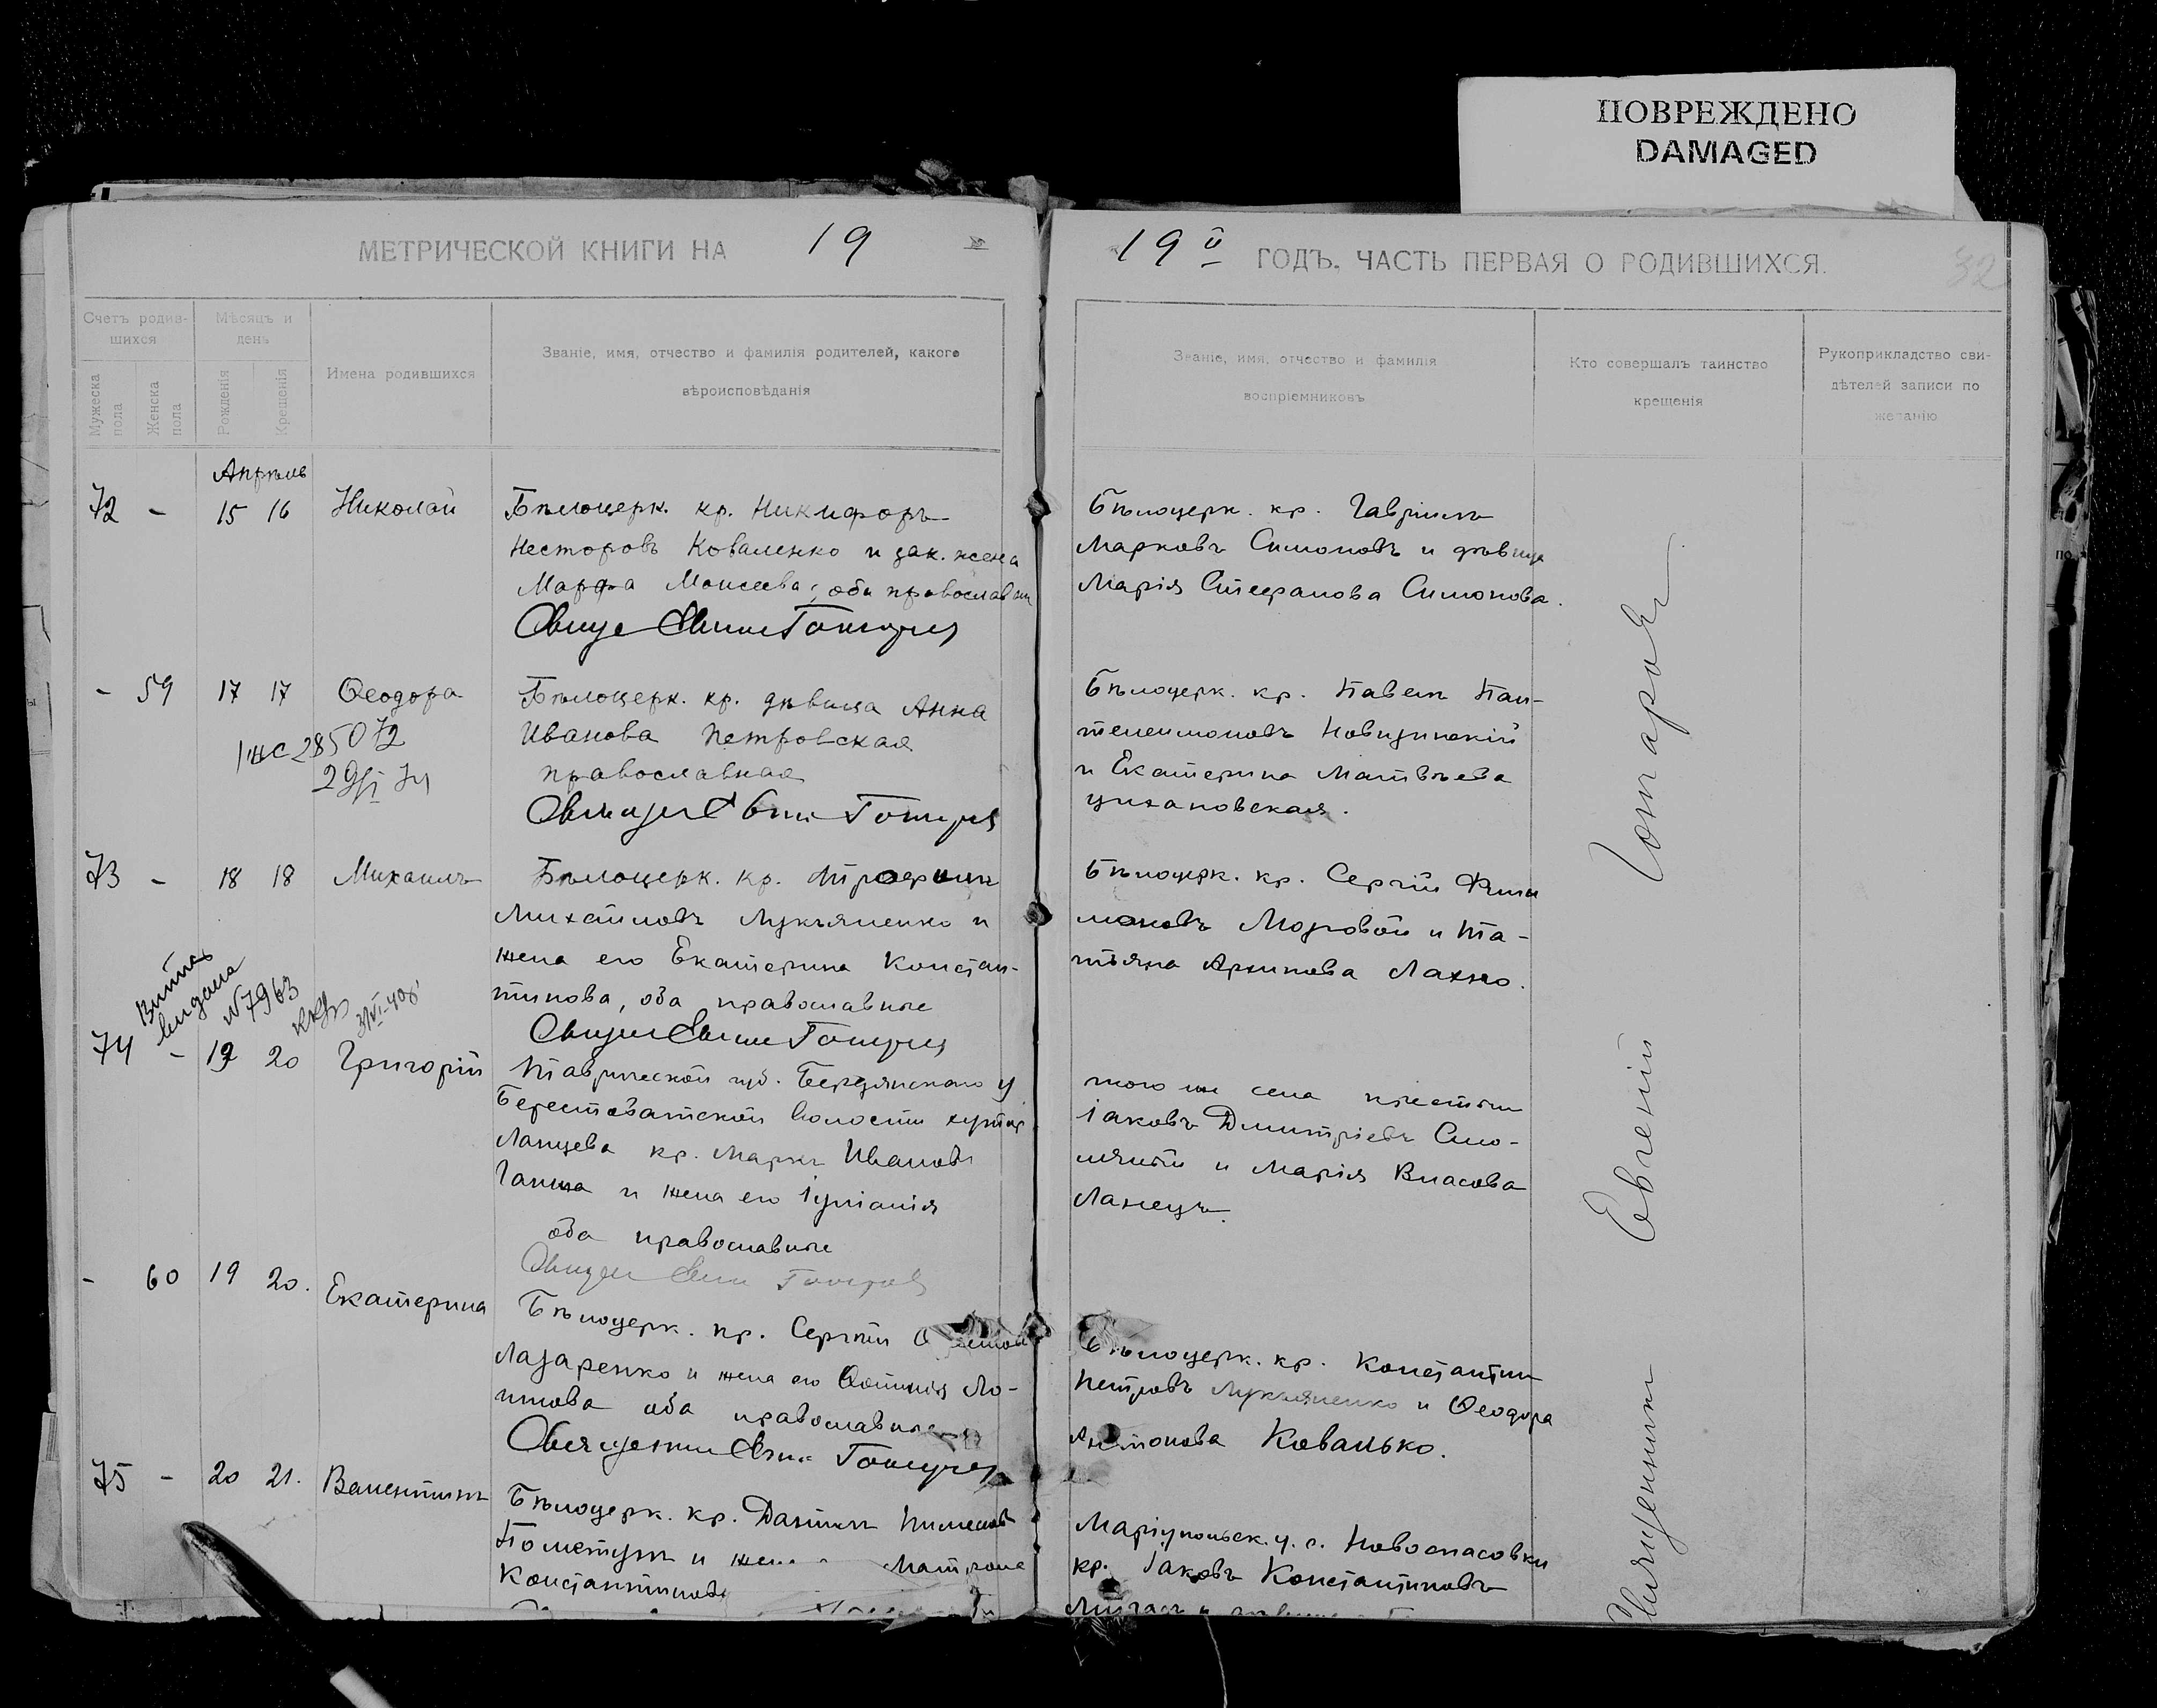 ПОВРЕЖДЕНО
DAMAGED
МЕТРИЧЕСКОЙ КНИГИ НА 19
19 ГОДЪ, ЧАСТЬ ПЕРВАЯ О РОДИВШИХСЯ.
32
Счетъ родив-
шихся
Мужеска пола
Женска пола
Мѣсяцъ и
день
Рожденія
Крещенія
Имена родившихся
Званіе, имя, отчество и фамилія родителей, какого
вѣроисповѣданія
Званіе, имя, отчество и фамилія
воспріемниковъ
Кто совершалъ таинство
крещенія
Рукоприкладство сви-
дѣтелей записи по
желанію
Апрѣль
72 - 15 16 Николай
Бѣлоцерк. кр. Никифоръ
Несторовъ Коваленко и зак. жена
Марфа Моисеева; оба православн
Бѣлоцерк. кр. Гавріилъ
Марковъ Симоновъ и дѣвица
Марія Стефанова Симонова.
- 59 17 17 Ѳеодора
285072
Бѣлоцерк. кр. дѣвица Анна
Иванова Петровская
православная
Бѣлоцерк. кр. Павелъ Пан-
телеимоновъ Новицинскій
и Екатерина Матвѣева
Цихановская.
73 - 18 18 Михаилъ
Бѣлоцерк. кр. Трофимъ
Михаиловъ Лукьяненко и
жена его Екатерина Констан-
тинова, оба православные
Бѣлоцерк. кр. Сергій Фили
моновъ Мозговой и Та-
тіяна Архипова Лахно.
видана
№7963
74 - 19 20 Григорій
Таврической губ. Бердянскаго у
Берестоватской волости хутор
Ланцева кр. Маркъ Ивановъ
Ганжа и жена его Іуліанія
оба православные
того же села крестьян
Іаковъ Димитріевъ Смо-
лякъ и Марія Власова
Ланецъ.
- 60 19 20. Екатерина
Бѣлоцерк. кр. Сергій
Лазаренко и жена его Ѳотинія Ло-
гинова оба православные
Бѣлоцерк. кр. Константинъ
Петровъ Лукьяненко и Ѳеодора
Антонова Ковалько.
75 - 20 21. Валентинъ
Бѣлоцерк. кр. Даніилъ Пименовъ
и жена Матрона
Константинова
Маріупольск. у. с. Новоспасовки
кр. Іаковъ Константиновъ
Священникъ Евгеній Гонтаровъ